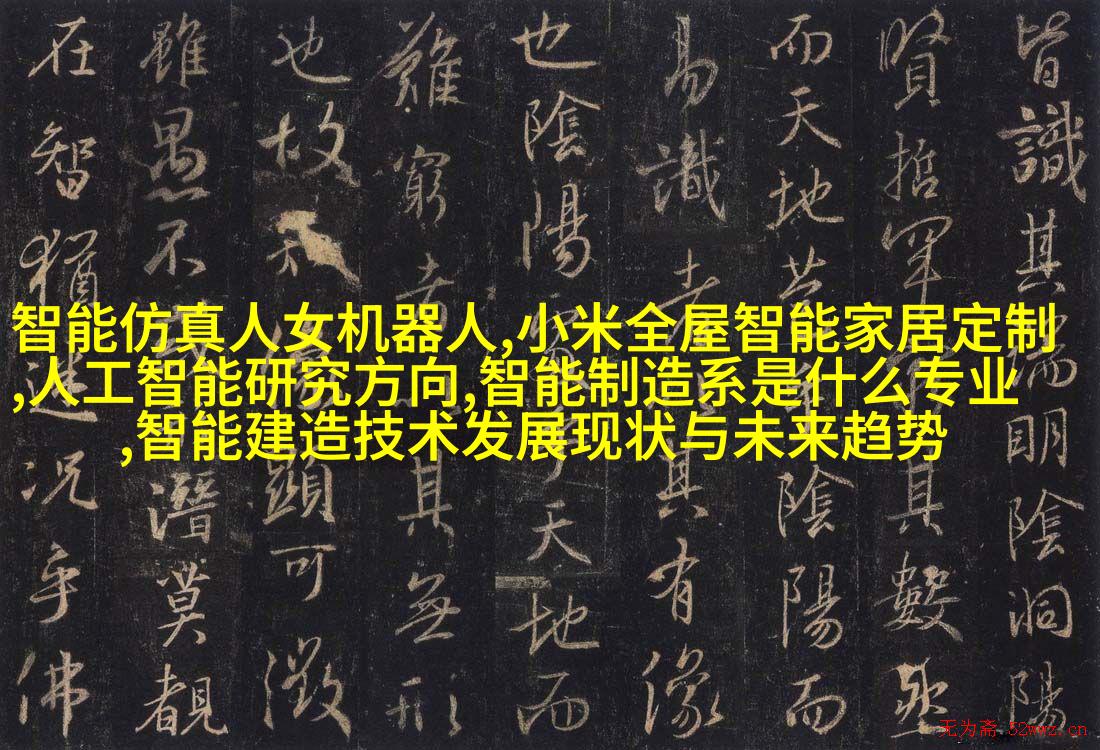 皆識其端明陰洞陽
賢哲罕其數然
而天地苞陰陽而
易識者其有像
也陰陽天地而
難窮者其無形
也故知顯可徵
雖愚不潛莫覩
在智猶迷況乎佛
智能仿真人女机器人,小米全屋智能家居定制
,人工智能研究方向,智能制造系是什么专业
,智能建造技术发展现状与未来趋势
无为斋 52wwz.cn